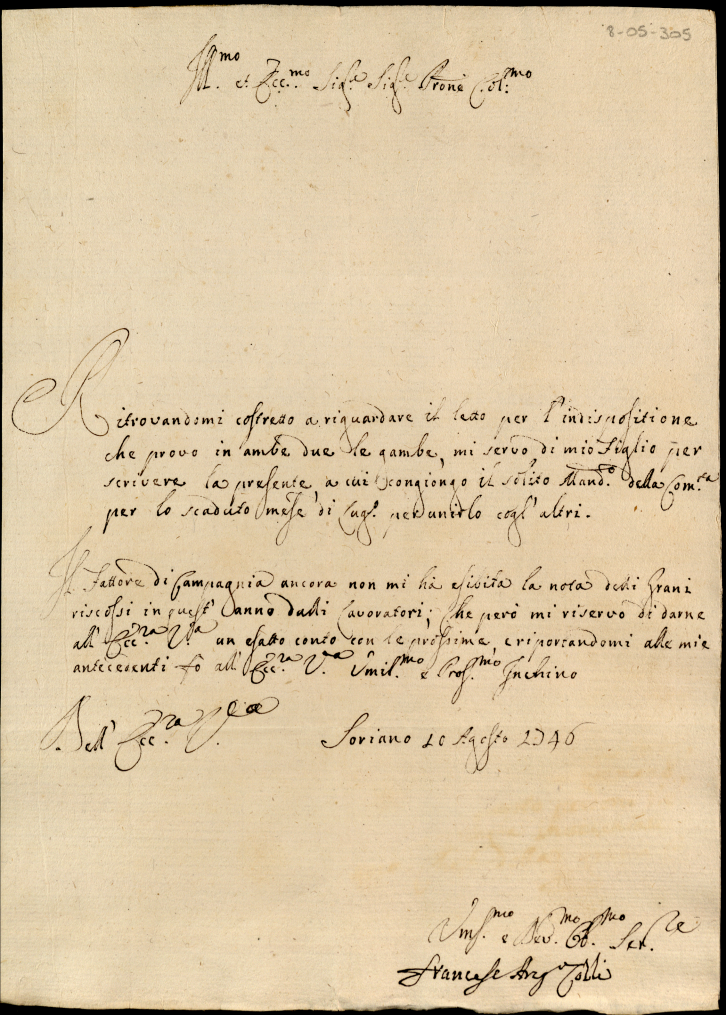 8-05-305
Ill.mo et Ecc.mo Sig.re Sig.re Prone Col:mo
Ritrovandomi costretto a riguardare il letto per l'indispositione
che provo in ambe due le gambe, mi servo di mio Figlio per
scrivere la presente, a cui congiongo il solito Mand.o della Com.ta
per lo scaduto mese di Lug.o per unirlo cogl'altri.
Il Fattore di Campagnia ancora non mi ha esibita la nota delli Grani
riscossi in quest'anno dalli Lavoratori; Che però mi riservo di darne
all'Ecc.ra V.ra un esatto conto con le prossime, e riportandomi alle mie
antecedenti fò all'Ecc.ra V.ra Umil.mo e Prof.mo Inchino
Dell'Ecc.ra V.ra
Soriano 10 Agosto 1746
Um.mo e Dev.mo Ob.mo Ser.re
Frances